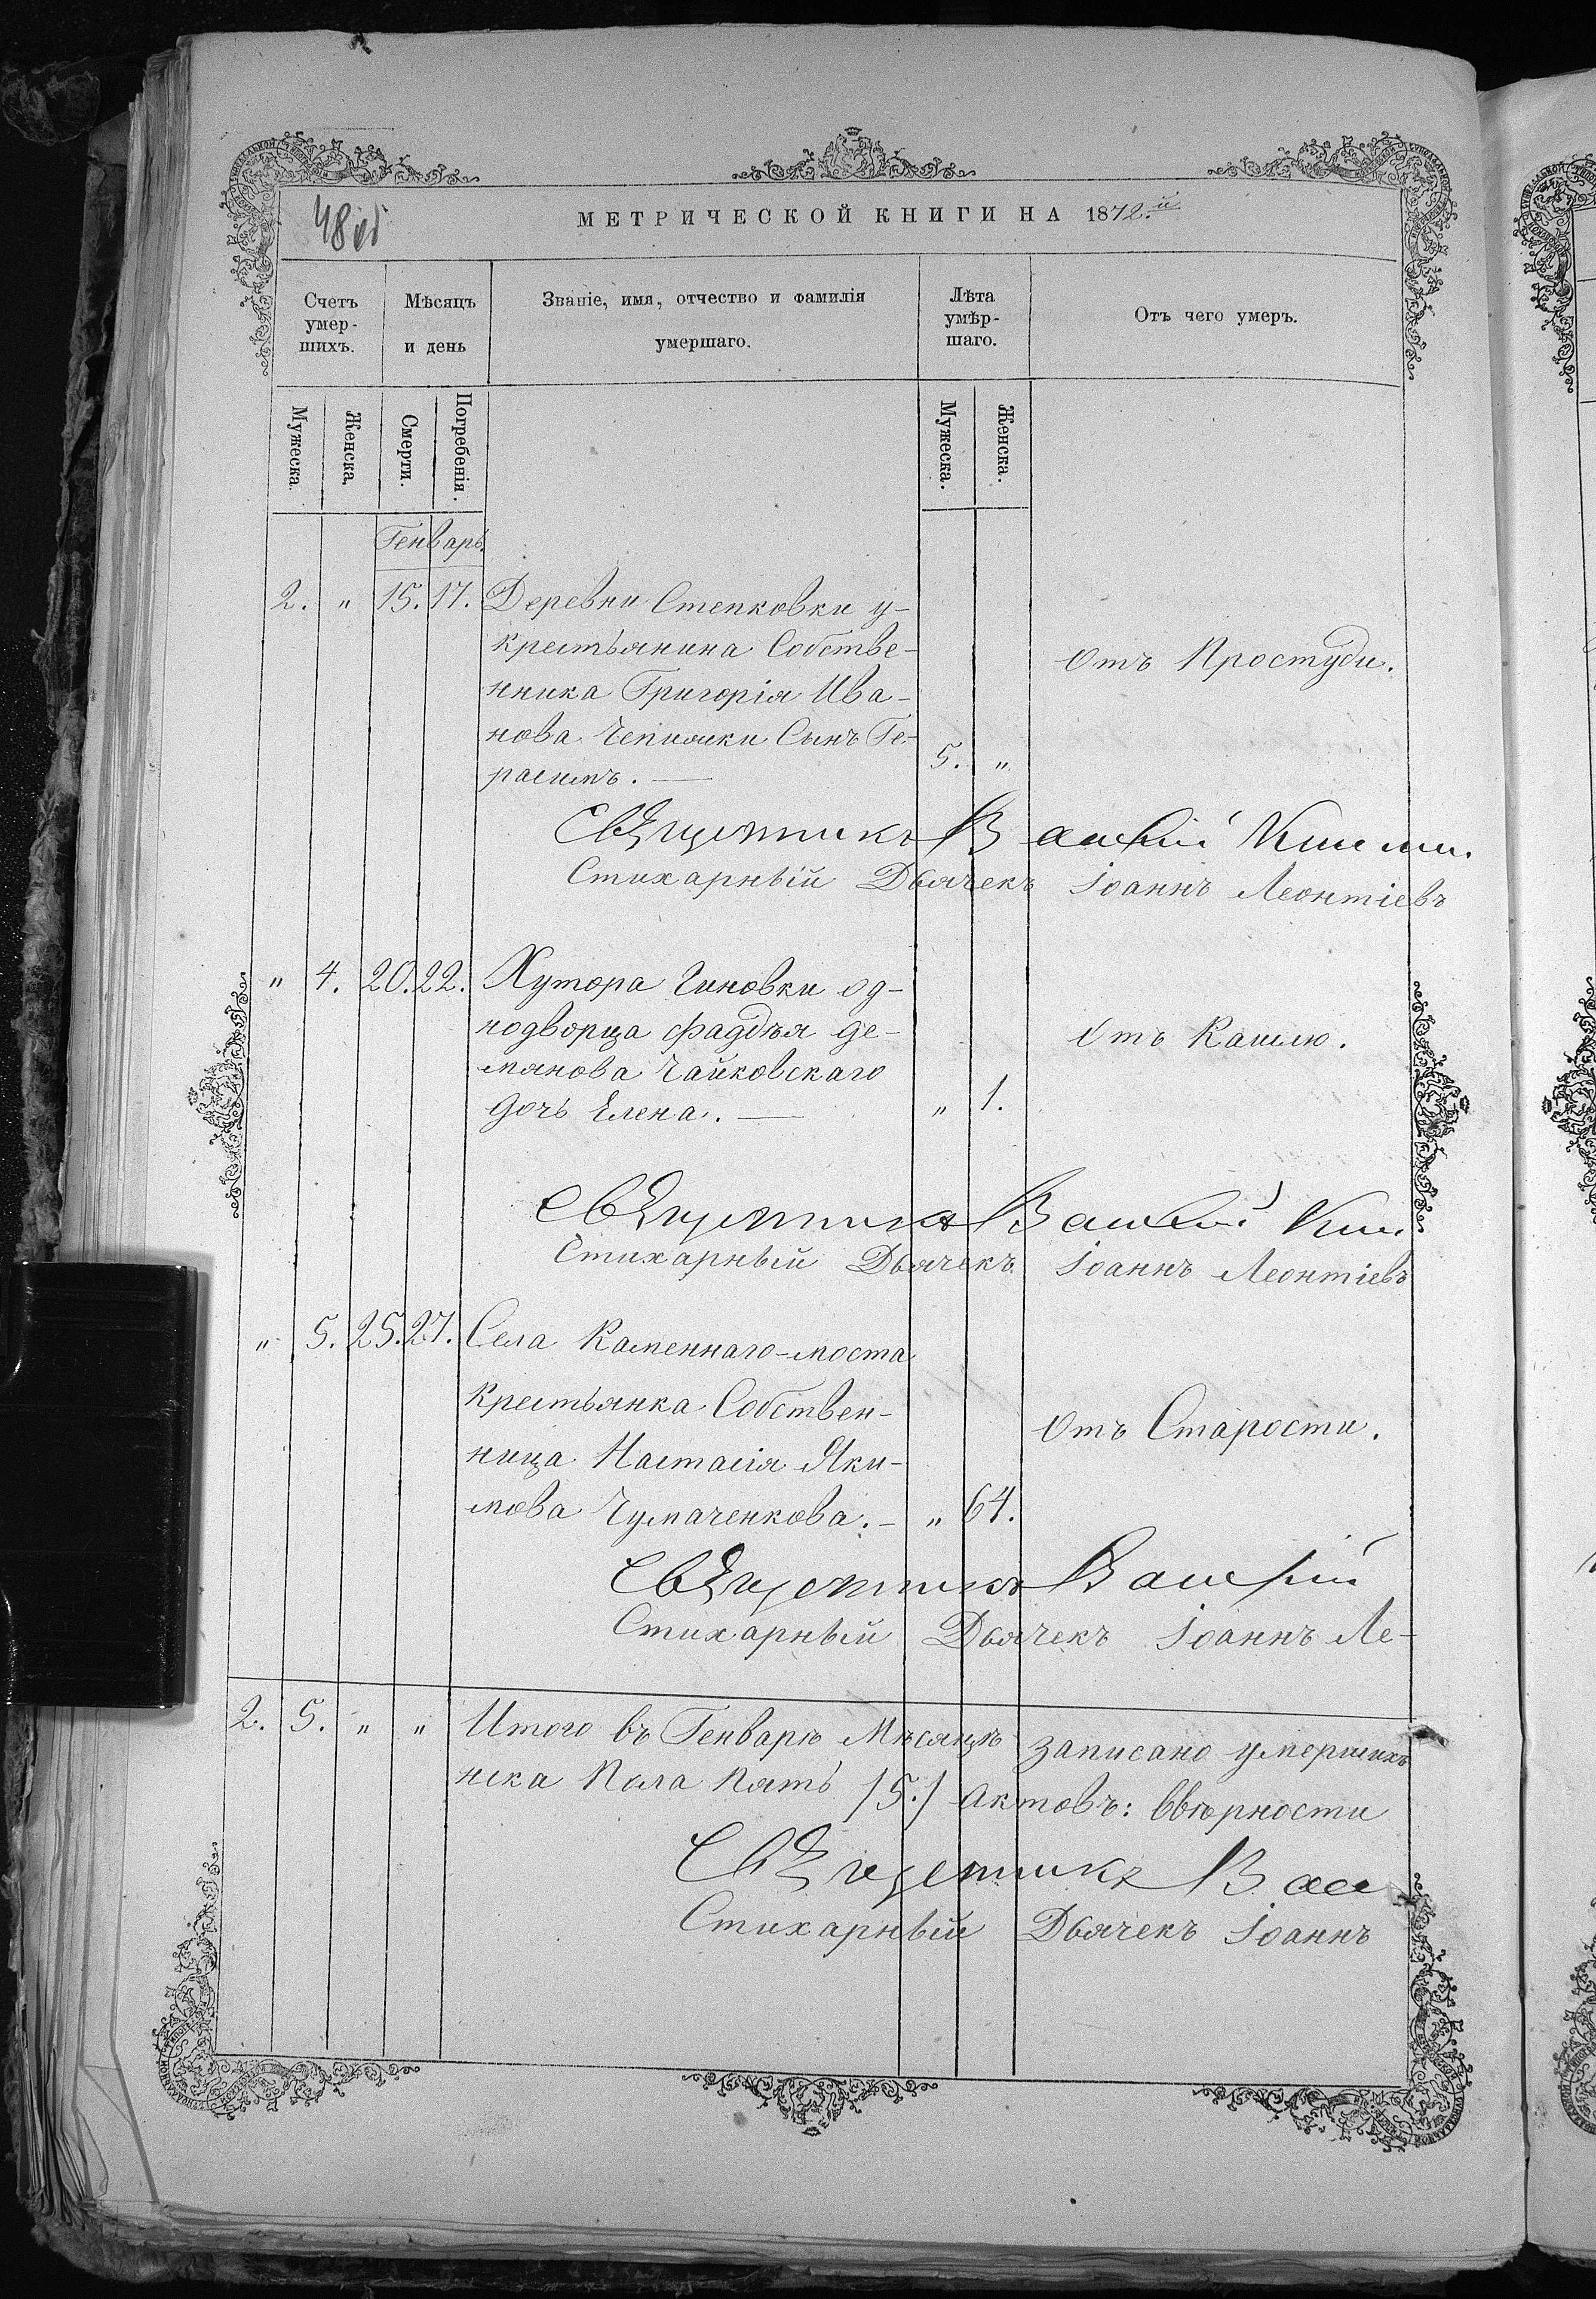 48 об
МЕТРИЧЕСКОЙ КНИГИ НА 1872.й
Счетъ умер-шихъ.
Мѣсяцъ и день
Званіе, имя, отчество и фамилія умершаго.
Лѣта умѣр-шаго.
Отъ чего умеръ.
Мужеска. Женска. Смерти. Погребенія. Мужеска. Женска.
Генварь.
2. " 15. 17. Деревни Степковки у-
крестьянина Собстве-
нника Григорія Ива-
нова Чепижки Сынъ Ге-
расимъ. — 5. "
отъ Простуди.
Священникъ Василій
Стихарный Дьячекъ Іоаннъ Леонтіевъ
" 4. 20. 22. Хутора Гиновки од-
нодворца Фаддѣя Де-
мянова Чайковскаго
дочь Елена. — " 1.
Отъ Кашлю.
Священникъ Василій
Стихарный Дьячекъ Іоаннъ Леонтіевъ
" 5. 25. 27. Села Каменнаго-моста
Крестьянка Собствен-
ница Настасія Яки-
мова Чумаченкова. — " 64.
отъ Старости.
Священникъ Василій
Стихарный Дьячекъ Іоаннъ Ле-
2. 5. " " Итого въ Генварѣ Мѣсяцѣ записано умершихъ
нска Пола Пять /5./ Актовъ: ввѣрности
Священникъ Вас
Стихарный Дьячекъ Іоаннъ